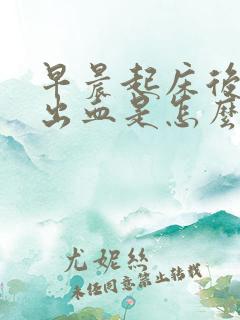 早晨起床後
出血是怎麼
尤妮絲
未任同意禁止转载